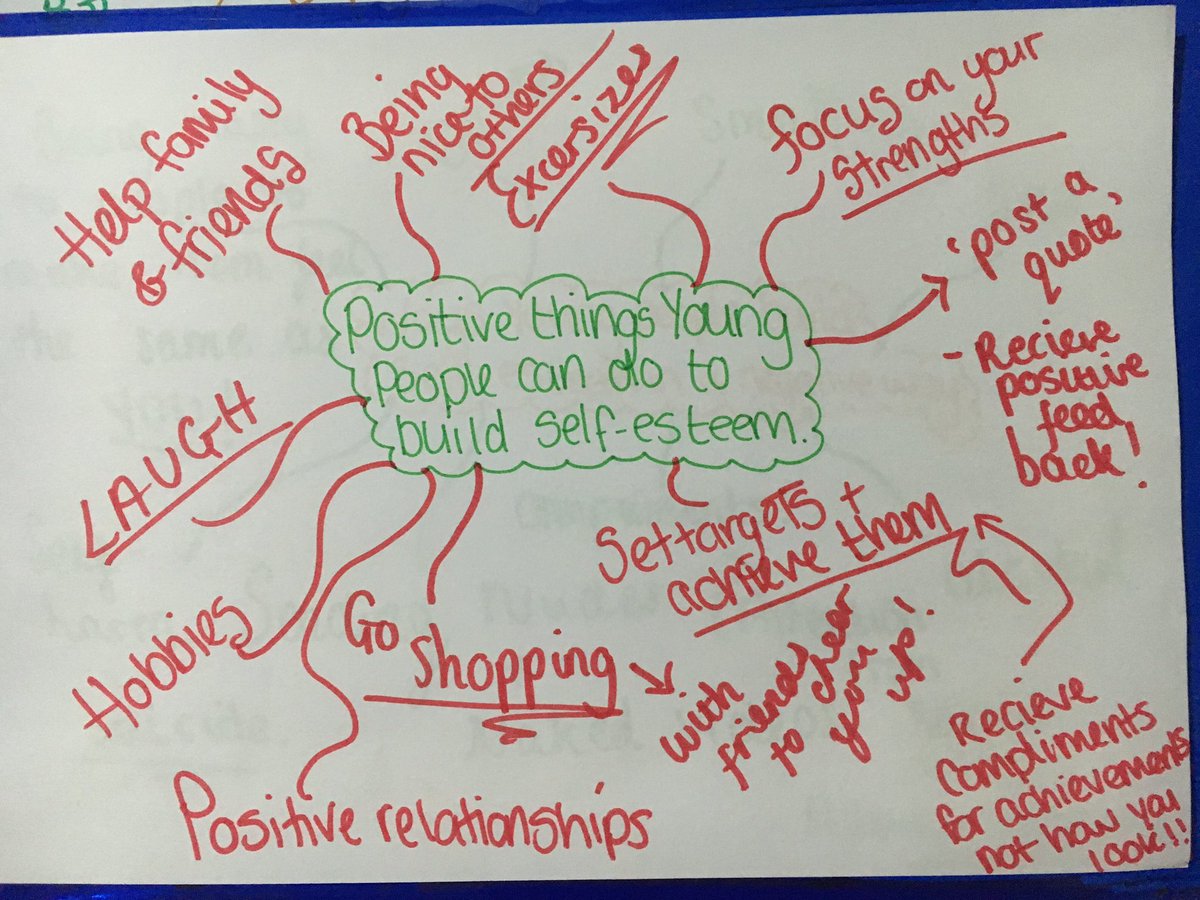 Positive things Young
People can do to
build self-esteem.
Help family
& friends
Being
nice to
others
Excersizes
focus on your
strengths
'post a
quote'
- Recieve
positive
feed
back!
Set targets +
achieve them
Recieve
compliments
for achievements
not how you
look!!
Go
shopping
with
friends
to cheer
you
up!
Positive relationships
Hobbies
LAUGH